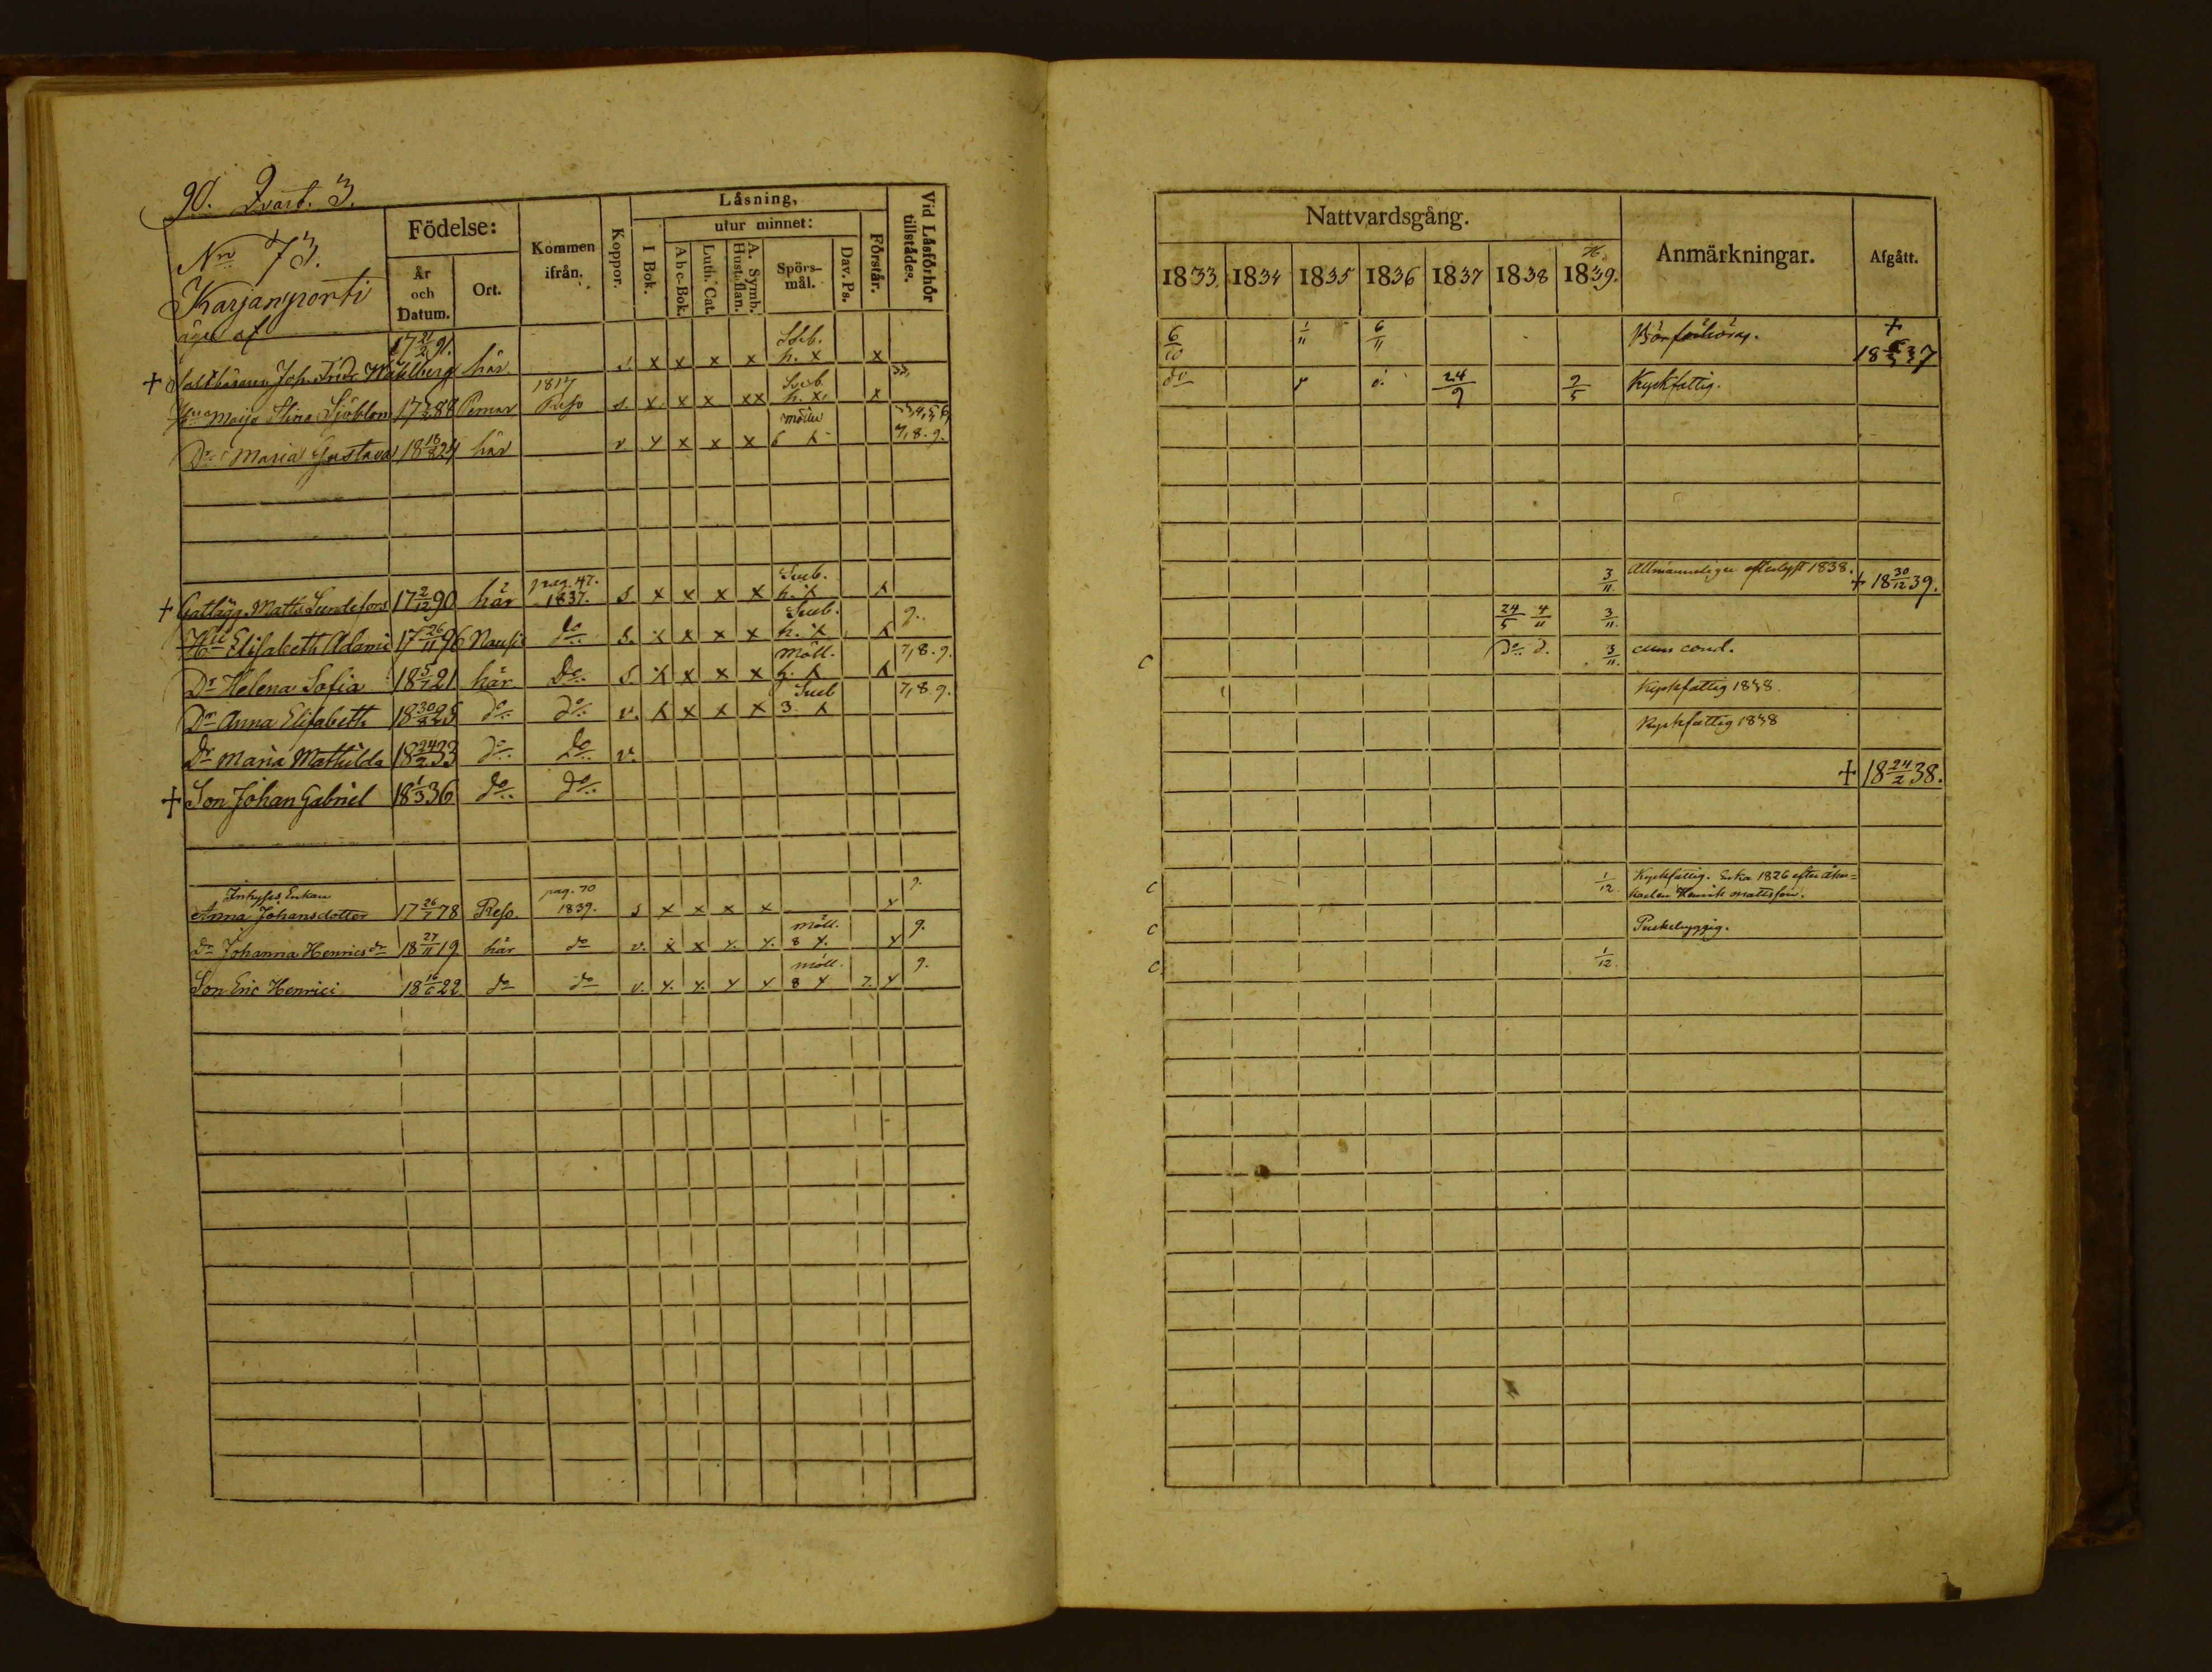 90. Qvart. 3.
Nro 73.
Karjanportti
äges af
Födelse:
år och Datum.
Ort.
Kommen ifrån.
Koppor.
Läsning,
I Bok.
utur minnet:
Abc-Bok.
Luth. Cat.
A. Symb. Hustaflan.
Spörsmål.
Dav. Ps.
Förstår.
Vid Läsförhör tillstädes.
+ Joh. Fridr Wahlberg 17 21/2 91. här s. x x x x Sveb. h. x x
Hu Maja Stina Sjöblom 17 88 Pemar 1817 Reso s. x x x xx Sveb. h. x. x
Dr Maria Gustava 18 24 här v. x x x x 6 x 7, 8. 9.
+ Matts Sundefors 17 2/12 90 här pag. 47. 1837. s x x x x Sveb. h. x x
Hu Elisabeth Adami 17 26/11 96 Nousis do s. x x x x Sveb. h. x x 9.
Dr Helena Sofia 18 5/7 21 här Do s x x x x möll. h. x x 7, 8. 9.
Dr Anna Elisabeth 18 30/8 25 do do v. x x x x Sveb 3 x 7, 8. 9.
Dr Maria Mathilda 18 24/2 33 do do v.
+ Son Johan Gabriel 18 1/3 36 do do
Inhyses Enkan
Anna Johansdotter 17 26/7 78 Reso. pag. 70 1839. s x x x x x 9.
Dr Johanna Henricsdr 18 27/11 19. här do v. x x x. x. möll. 8 x. x 9.
Son Eric Henrici 18 16/6 22. do do v. x. x. x x möll. 8 x 7. x 9.
Nattvardsgång.
1833. 1834 1835 1836 1837 1838 1839.
Anmärkningar.
Afgått.
6/10 1/11 6/11 Bör förhöras. + 18 37
do 24/9 9/5 Kyrkfattig.
3/11. Allmänneligen efterlyst 1838. + 18 30/12 39.
24/5 4/11 3/11.
C do d. 3/11. cum cond.
Kyrkfattig 1838.
Kyrkfattig 1838
+ 18 24/2 38.
C 1/12. Kyrkfattig. Enka 1826 efter
Henrik Mattsson.
C Puckelryggig.
C. 1/12.